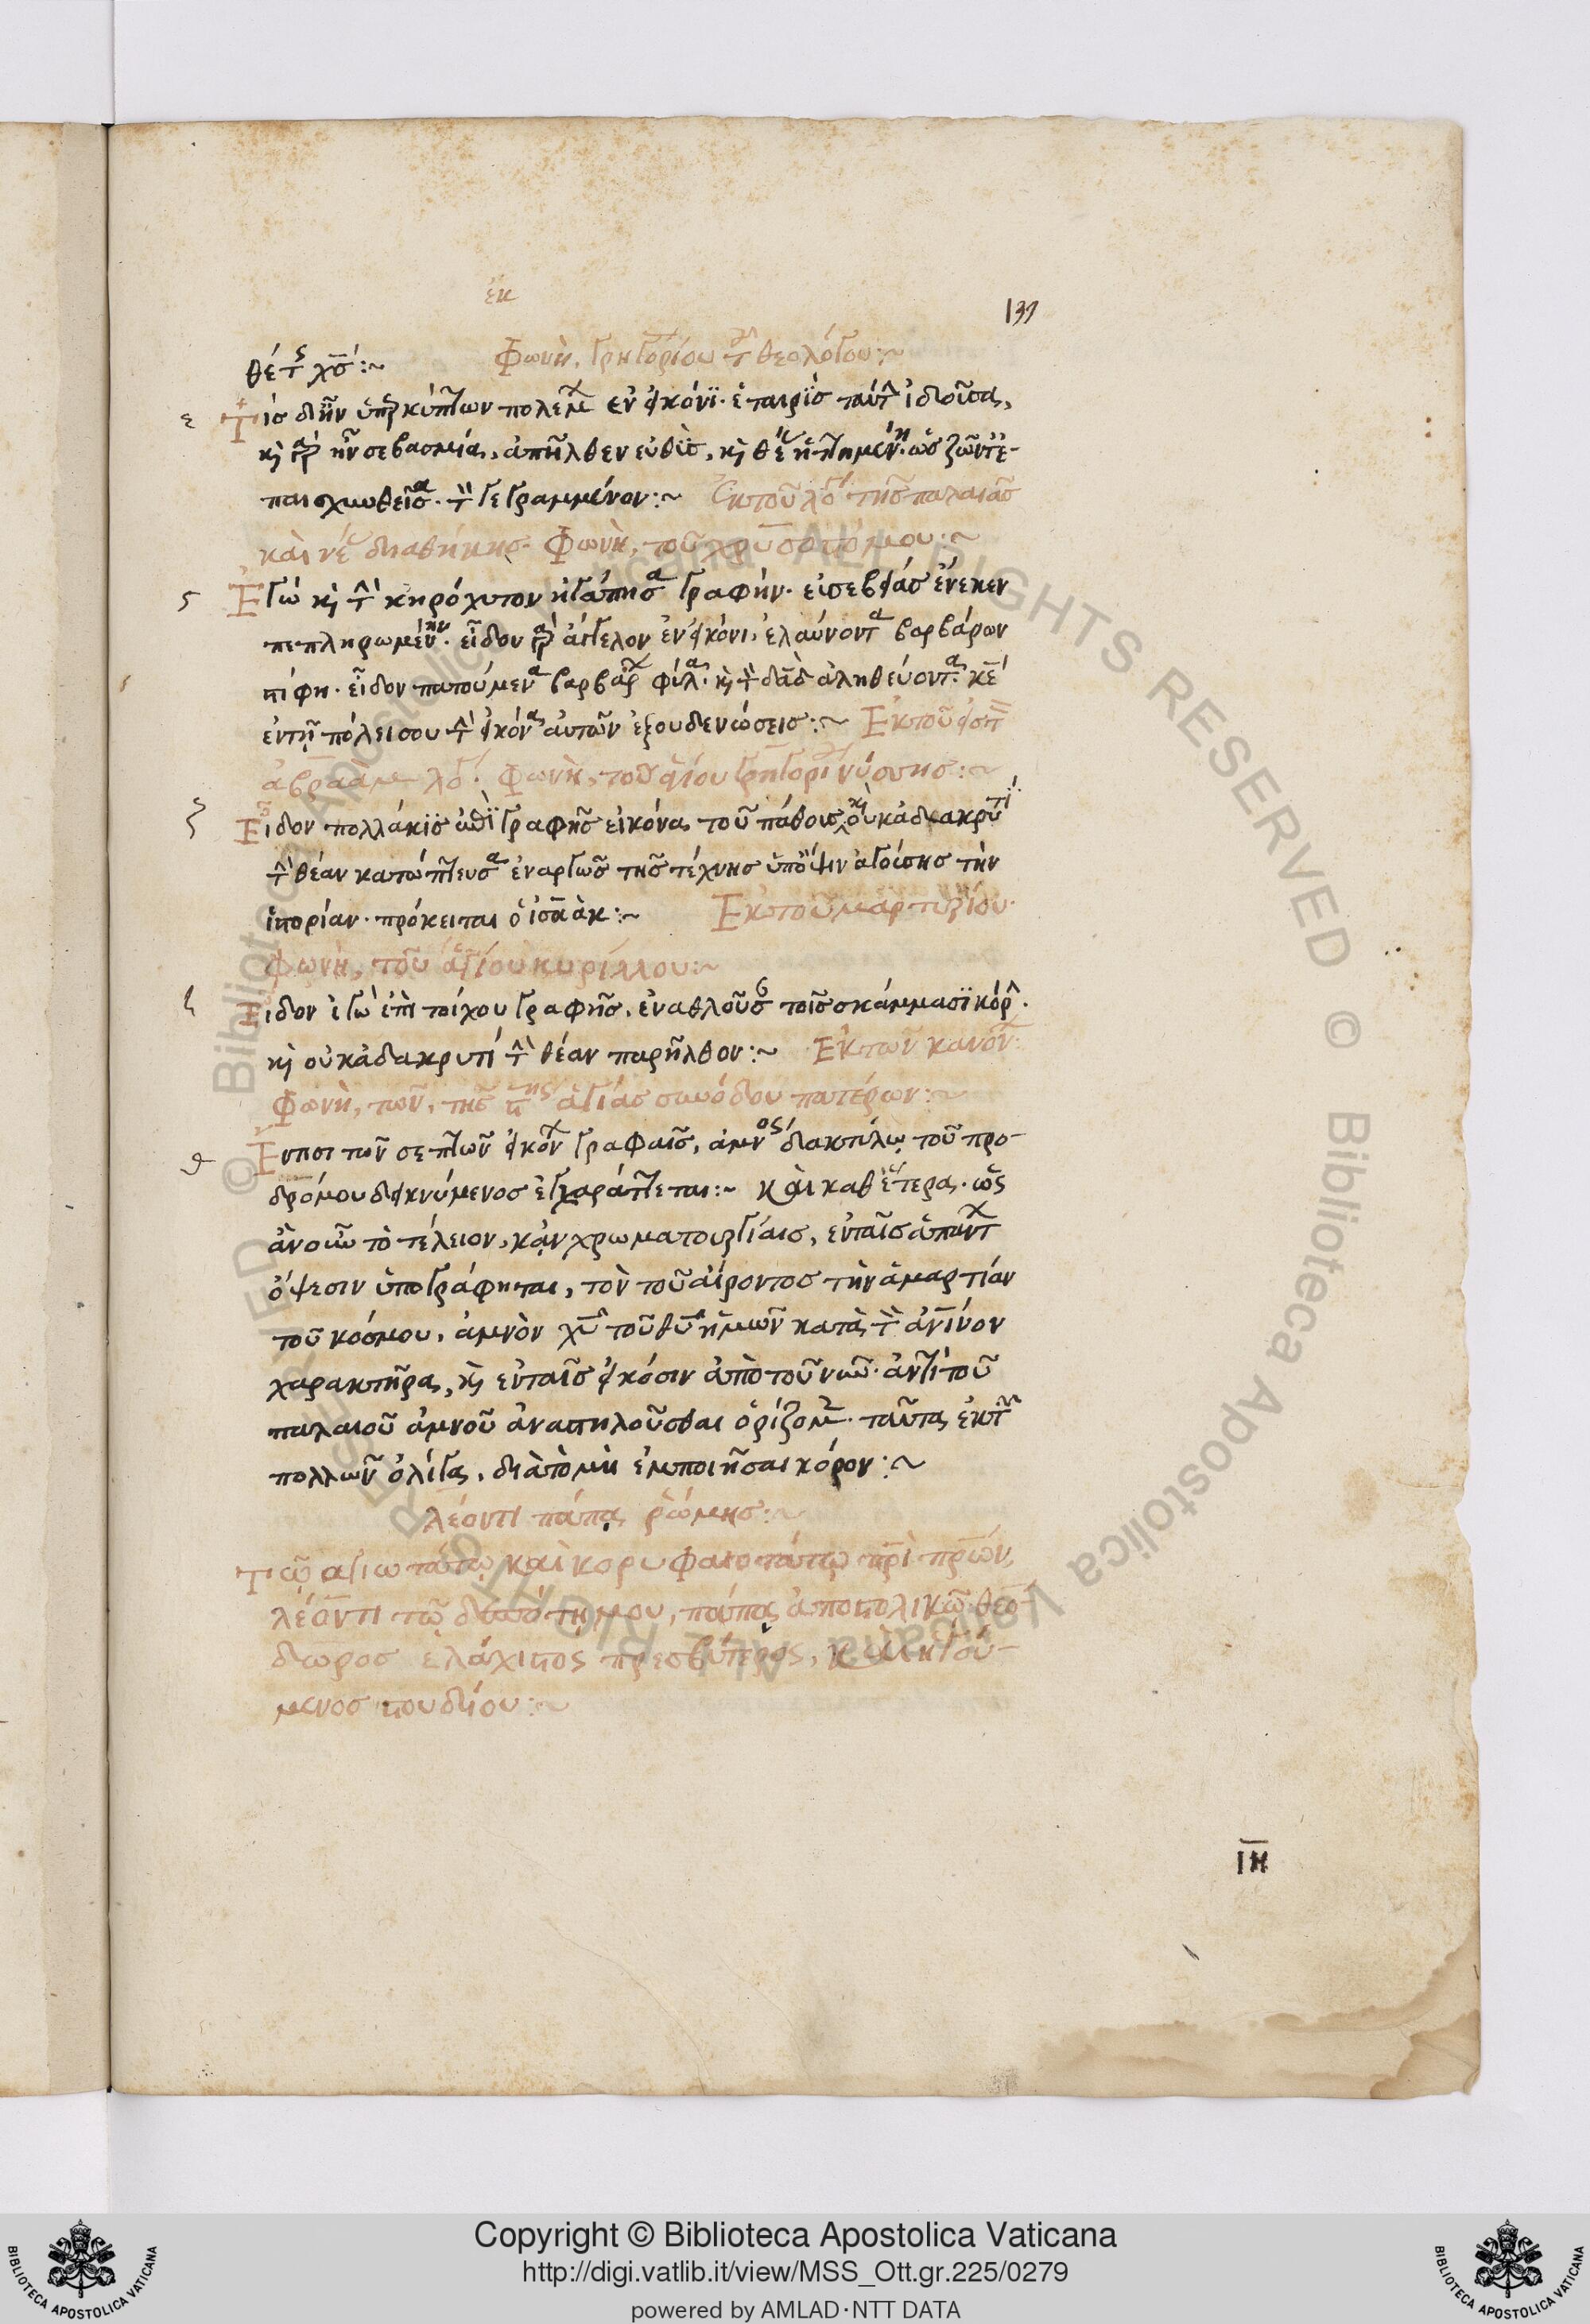 ἐκ
139
θέντος χριστός:~ Φωνὴ, Γρηγορίου τοῦ θεολόγου:~
ε Τις δ' ἦν ὑπερκύπτων πολέμων ἐν εἰκόνι. ἑταιρὶς ταύτην ἰδοῦσα,
καὶ γὰρ ἦν σεβασμία, ἀπῆλθεν εὐθὺς, καὶ ὡς ζῶντα ἐ-
παισχυνθεῖσα τὸν γεγραμμένον:~ Ἐκ τοῦ λόγου τῆς παλαιᾶς
καὶ νέας διαθήκης. Φωνὴ, τοῦ χρυσοστόμου:~
ς Ἐγὼ καὶ τὴν κηρόχυτον ἠγάπησα γραφὴν. εὐσεβείας ἕνεκεν
πεπληρωμένην. εἶδον γὰρ ἄγγελον ἐν εἰκόνι, ἐλαύνοντα βαρβάρων
στίφη. εἶδον πατούμενα βαρβάρων φῦλα. καὶ τὸν δαδ ἀληθεύοντα. κε
ἐν τῇ πόλει σου τὴν εἰκόνα αὐτῶν ἐξουδενώσεις:~ Ἐκ τοῦ εἰς τὸν
ἀβραὰμ λόγου. Φωνὴ, τοῦ ἁγίου Γρηγορίου νύσσης:~
ζ Εἶδον πολλάκις ἐπὶ γραφῆς εἰκόνα τοῦ πάθους, καὶ οὐκ ἀδακρυτὶ
τὴν θέαν κατώπτευσα ἐναργῶς τῆς τέχνης ὑπ' ὄψιν ἀγούσης τὴν
ἱστορίαν. πρόκειται ὁ ἰσαὰκ:~ Ἐκ τοῦ μαρτυρίου.
Φωνὴ, τοῦ ἁγίου κυρίλλου:~
η Εἶδον ἐγὼ ἐπὶ τοίχου γραφῆς, ἐναθλοῦσαν τοῖς σκάμμασι κόρην.
καὶ οὐκ ἀδακρυτί τὴν θέαν παρῆλθον:~ Ἐκ τῶν κανόνων
Φωνὴ, τῶν, τῆς ϛης ἁγίας συνόδου πατέρων:~
θ Ἔν τισι τῶν σεπτῶν εἰκόνων γραφαῖς, ἀμνὸς δακτύλῳ τοῦ προ-
δρόμου δεικνύμενος ἐγχαράττεται:~ Καὶ καθ' ἕτερα. ὡς
ἂν οὖν τὸ τέλειον, κἂν χρωματουργίαις, ἐν ταῖς ἁπάντων
ὄψεσιν ὑπογράφηται, τὸν τοῦ αἴροντος τὴν ἁμαρτίαν
τοῦ κόσμου, ἀμνὸν χυ τοῦ θυ ἡμῶν κατὰ τὸν ἀνινον
χαρακτῆρα, καὶ ἐν ταῖς εἰκόσιν ἀπὸ τοῦ νῦν. ἀντὶ τοῦ
παλαιοῦ ἀμνοῦ ἀναστηλοῦσθαι ὁρίζομεν. ταῦτα ἐκ τῶν
πολλῶν ὀλίγα, διὰ τὸ μὴ ἐμποιῆσαι κόρον:~
λέοντι πάπᾳ ῥώμης:~
Τῷ ἁγιωτάτῳ καὶ κορυφαιοτάτῳ πρι πρων,
λέοντι τῷ δεσπότῃ μου, πάπᾳ ἀποστολικῷ. θεό-
δωρος ἐλάχιστος πρεσβύτερος, καὶ ἡγού-
μενος στουδίου:~
ΙΗ
Copyright © Biblioteca Apostolica Vaticana
http://digi.vatlib.it/view/MSS_Ott.gr.225/0279
powered by AMLAD·NTT DATA